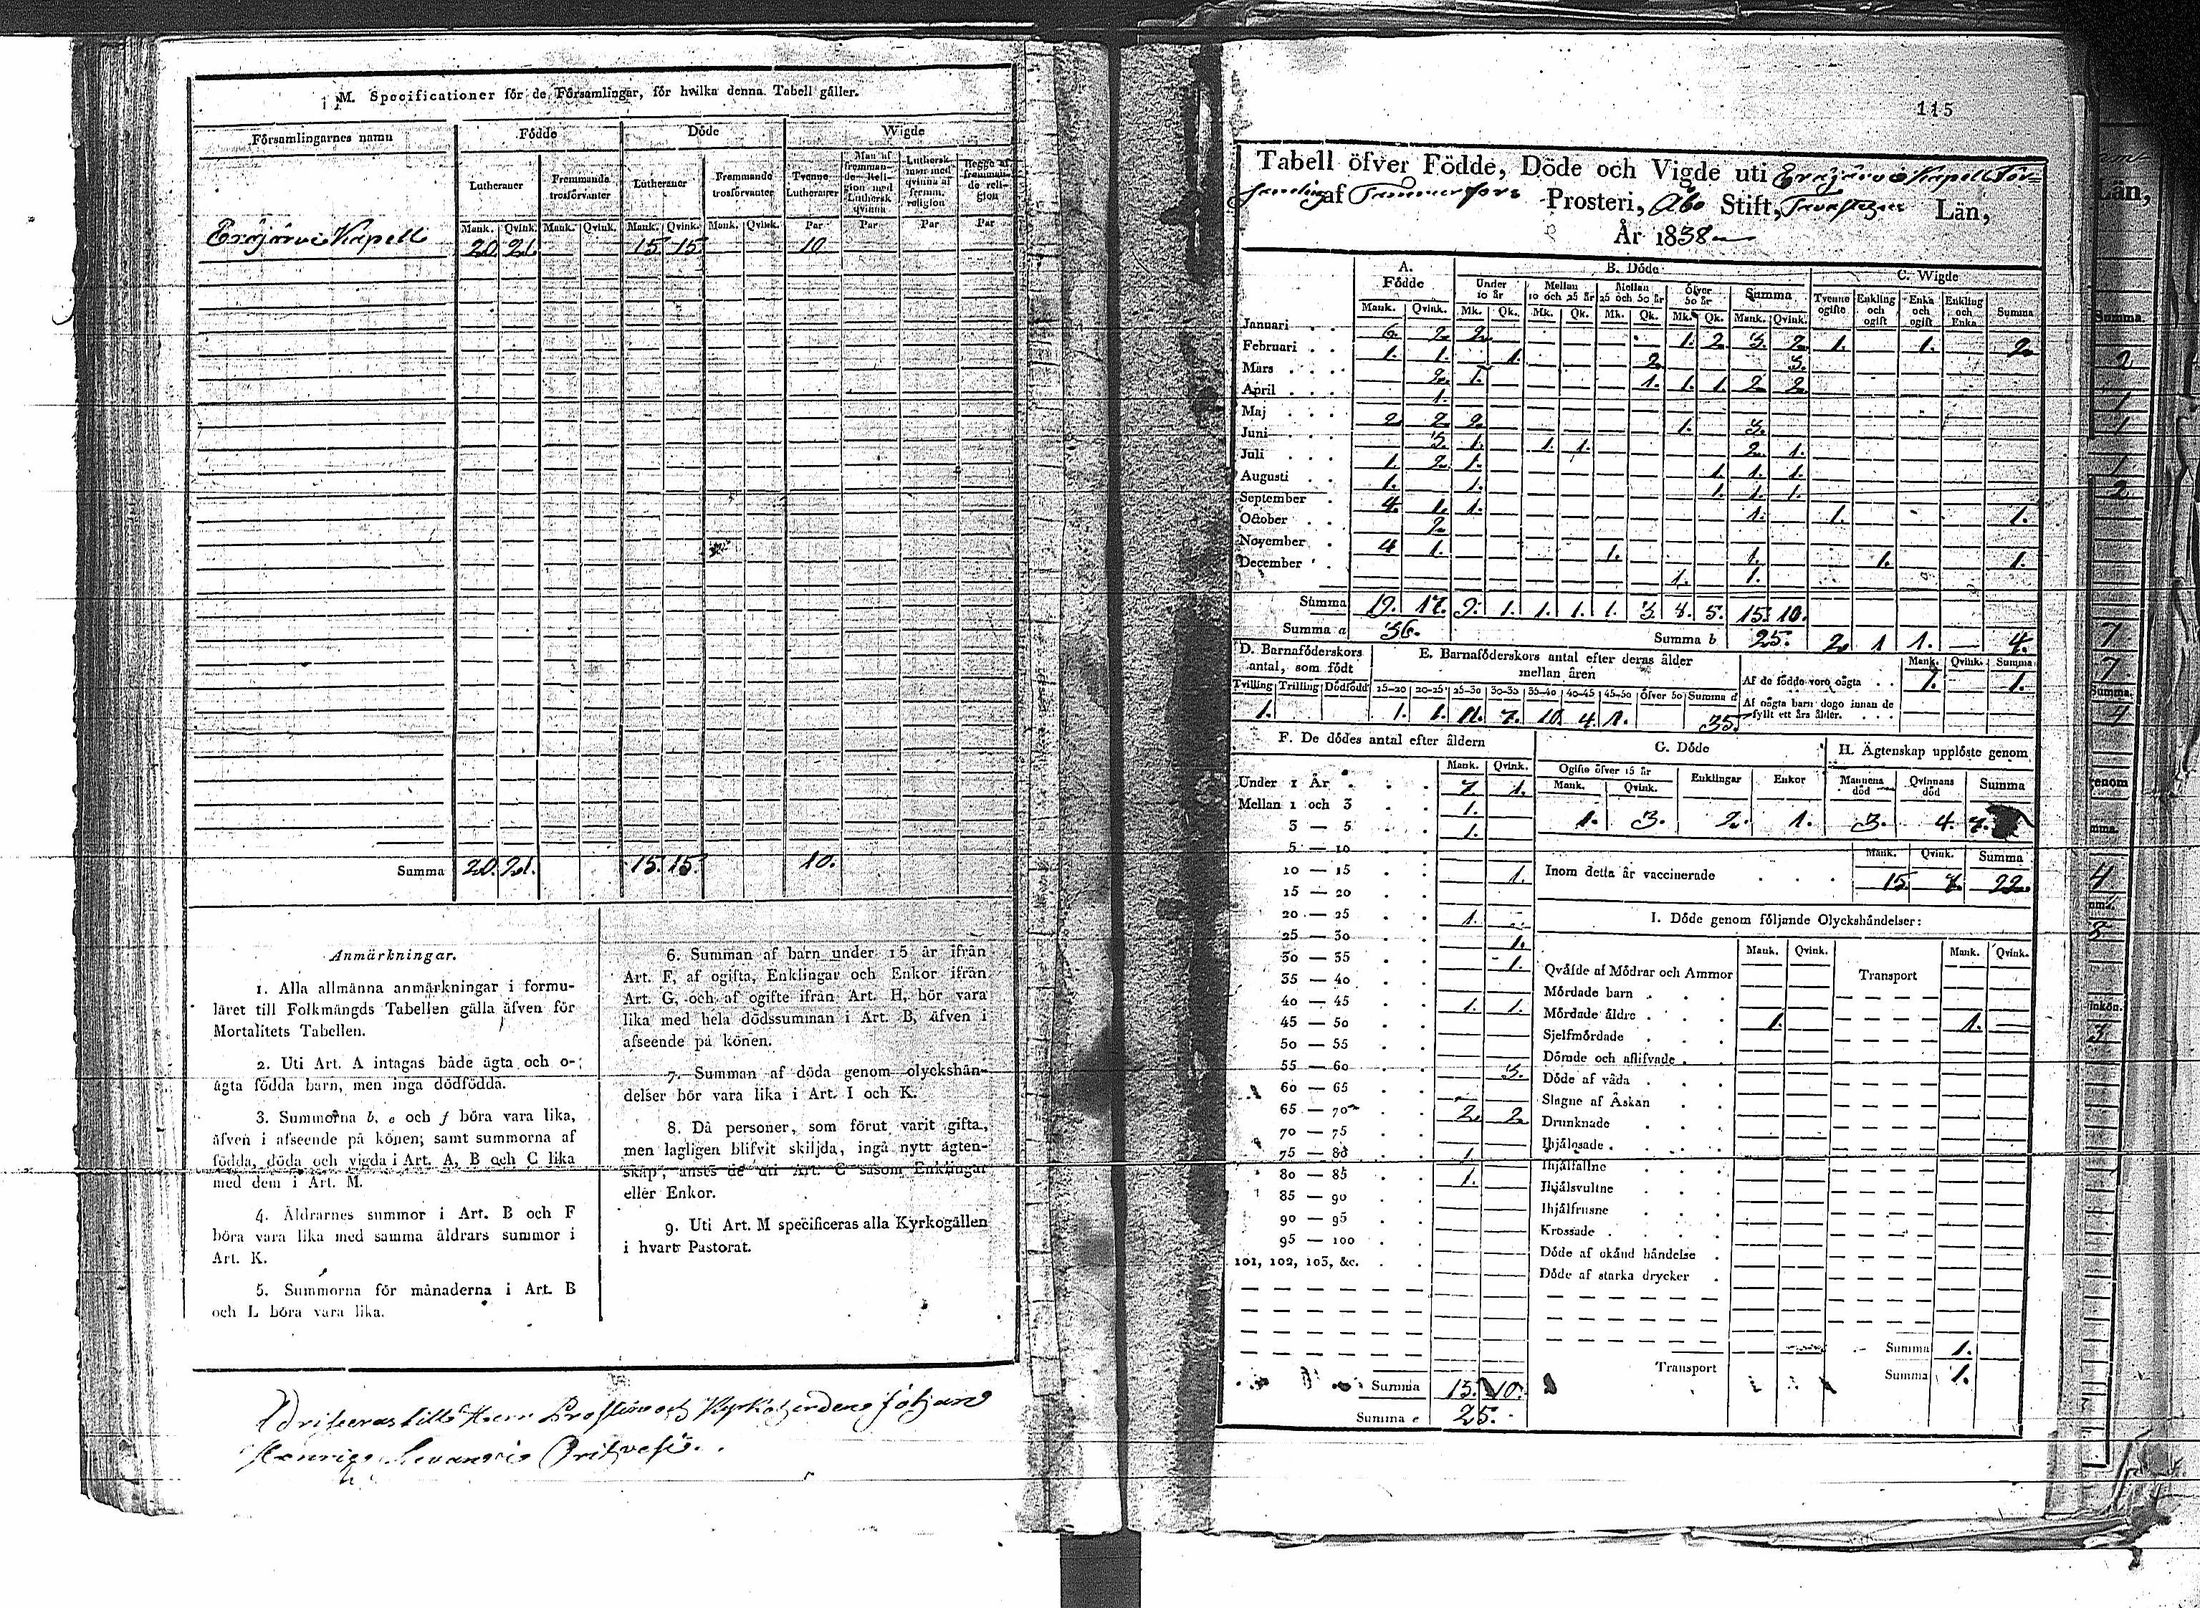 M. Specificationer för de Församlingar, för hvilka denna Tabell gäller.
Församlingarnes namn Födde Döde Wigde
Lutheraner Fremmande trosförvanter Lutheraner Fremmande trosförvanter Tvenne Lutheraner Man af fremmande Religion med Luthersk qvinna Luthersk man med qvinna af fremm. religion Begge af fremmande religion
Mank. Qvink. Mank. Qvink. Mank. Qvink. Mank. Qvink. Par Par Par Par
Eräjärvi Kapell 20 21. 15 15 10
Summa 20. 21. 15. 15. 10.
Anmärkningar.
1. Alla allmänna anmärkningar i formu-
läret till Folkmängds Tabellen gälla äfven för
Mortalitets Tabellen.
2. Uti Art. A intagas både ägta och o-
ägta födda barn, men inga dödfödda.
3. Summorna b, e och f böra vara lika,
äfven i afseende på könen; samt summorna af
födda, döda och vigda i Art. A, B och C lika
med dem i Art. M.
4. Äldrarnes summor i Art. B och F
böra vara lika med samma äldrars summor i
Art. K.
5. Summorna för månaderna i Art. B
och L böra vara lika.
6. Summan af barn under 15 år ifrån
Art. F, af ogifta, Enklingar och Enkor ifrån
Art. G, och af ogifte ifrån Art. H, bör vara
lika med hela dödssumman i Art. B, äfven i
afseende på könen.
7. Summan af döda genom olyckshän-
delser bör vara lika i Art. I och K.
8. Då personer, som förut varit gifta,
men lagligen blifvit skiljda, ingå nytt ägten-
skap, anses de uti Art. C såsom Enklingar
eller Enkor.
9. Uti Art. M specificeras alla Kyrkogällen
i hvart Pastorat.
115
Tabell öfver Födde, Döde och Vigde uti Eräjärvi Kapell För-
samling af Tammerfors Prosteri, Åbo Stift, Tavastehus Län,
År 1838
A. Födde B. Döde C. Wigde
Under 10 år Mellan 10 och 25 år Mellan 25 och 50 år Öfver 50 år Summa Tvenne ogifte Enkling och ogift Enka och ogift Enkling och Enka Summa
Mank. Qvink. Mk. Qk. Mk. Qk. Mk. Qk. Mk. Qk. Mank. Qvink.
Januari 6. 2. 2. 1. 2. 3. 2. 1. 1. 2.
Februari 1. 1. 1. 2. 3.
Mars 2. 1. 1. 1. 1. 2. 2.
April 1.
Maj 2. 2. 2. 1. 3.
Juni 3. 1. 1. 1. 2. 1.
Juli 1. 2. 1. 1. 1. 1.
Augusti 1. 1. 1. 1. 1.
September 4. 1. 1. 1. 1. 1.
October 2.
November 4 1. 1. 1. 1. 1.
December 1. 1.
Summa 19. 17. 9. 1. 1. 1. 1. 3. 5. 15. 10.
Summa a 36. Summa b 25. 2. 1 1. — 4.
D. Barnaföderskors antal, som födt E. Barnaföderskors antal efter deras ålder mellan åren
Mank. Qvink. Summa
Tvilling Trilling Dödfödd 15—20 20—25 25—30 30—35 35—40 40—45 45—50 Öfver 50 Summa d
1. 1. 1. 11. 7. 10. 4. 1. 35.
Af de födde voro oägta 1. 1.
Af oägta barn dogo innan de fyllt ett års ålder.
F. De dödes antal efter åldern
Mank. Qvink.
Under 1 År 7 1.
Mellan 1 och 3 1.
3 — 5 1.
5 — 10
10 — 15 1.
15 — 20
20 — 25 1.
25 — 30 1.
30 — 35 1.
35 — 40
40 — 45 1. 1.
45 — 50
50 — 55
55 — 60 3.
60 — 65
65 — 70 2. 2
70 — 75
75 — 80 1.
80 — 85 1.
85 — 90
90 — 95
95 — 100
101, 102, 103, &c.
Summa 15. 10.
Summa e 25.
G. Döde H. Ägtenskap upplöste genom
Ogifte öfver 15 år Enklingar Enkor Mannens död Qvinnans död Summa
Mank. Qvink.
1. 3. 2. 1. 3. 4. 7.
Mank. Qvink. Summa
Inom detta år vaccinerade 15 7. 22.
I. Döde genom följande Olyckshändelser:
Mank. Qvink. Mank. Qvink.
Qväfde af Mödrar och Ammor Transport
Mördade barn
Mördade äldre 1. 1.
Sjelfmördade
Dömde och aflifvade
Döde af våda
Slagne af Åskan
Drunknade
Ihjälosade
Ihjälfallne
Ihjälsvultne
Ihjälfrusne
Krossade
Döde af okänd händelse
Döde af starka drycker
Summa 1.
Transport Summa 1.